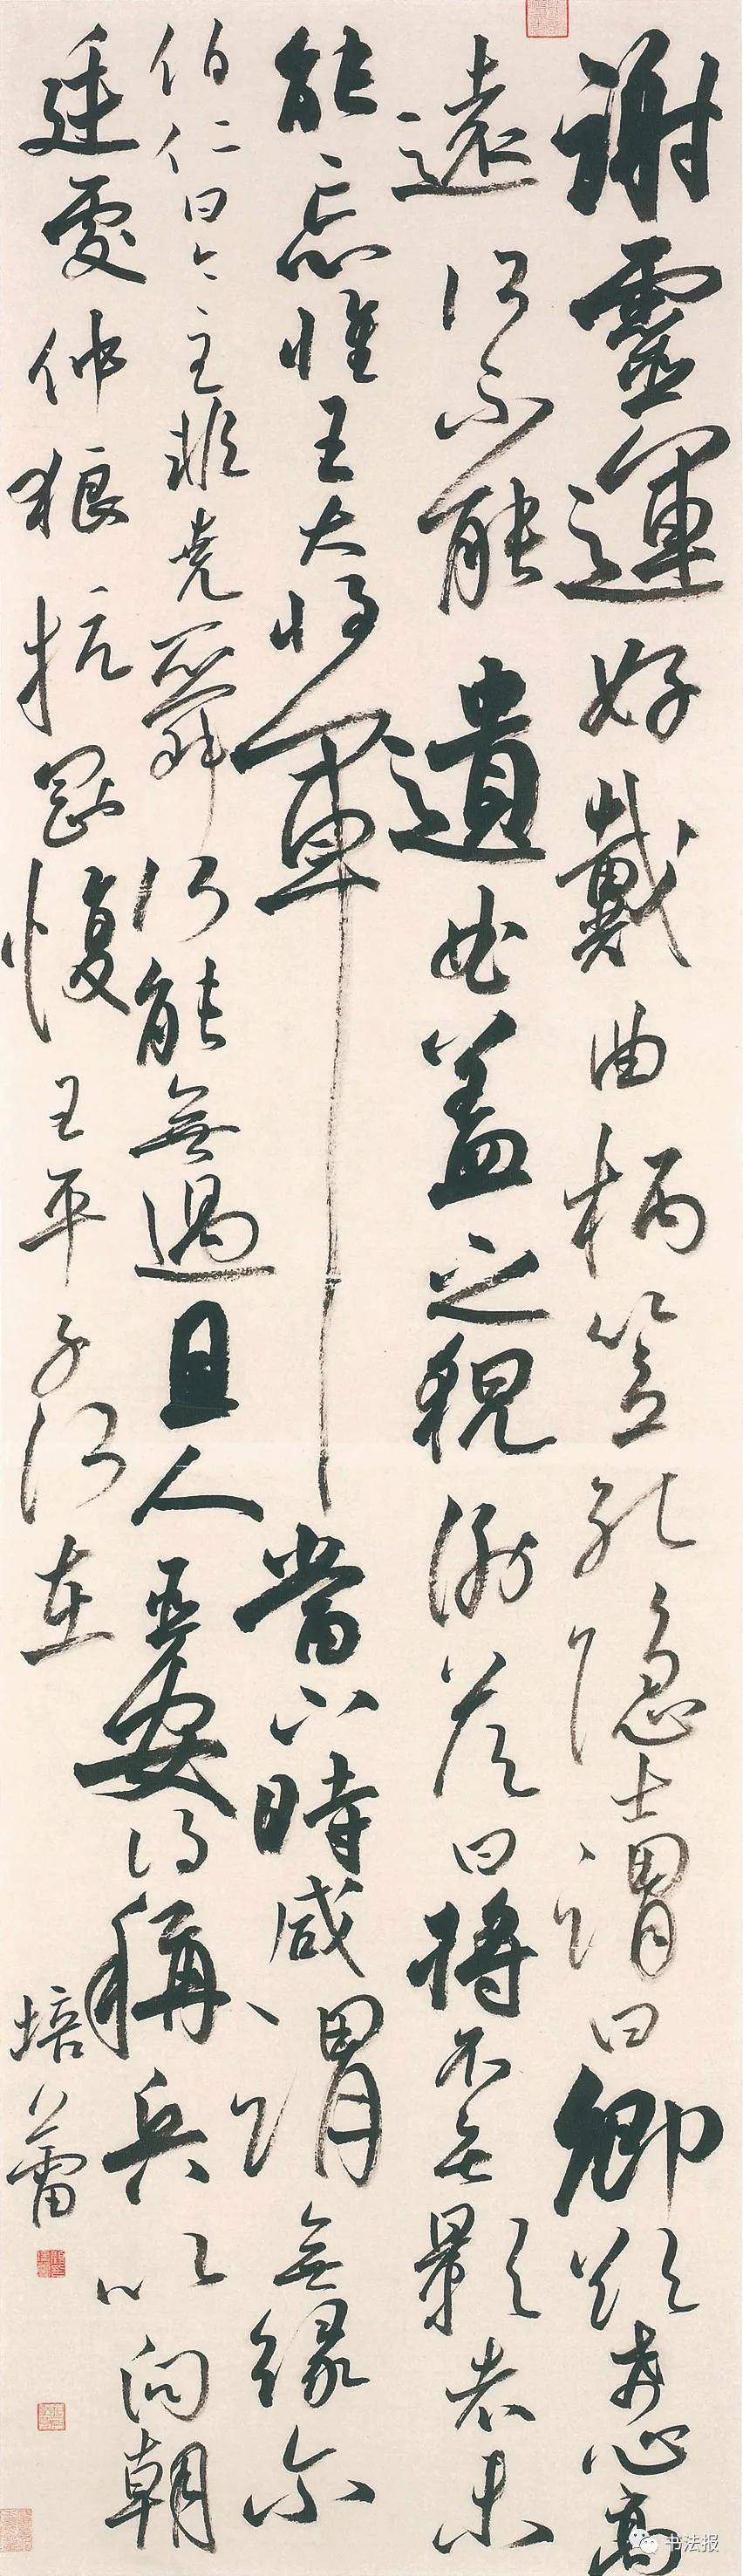 謝靈運好戴曲柄笠孔隱士謂曰卿欲希心高
遠何不能遺曲蓋之貌謝答曰將不畏影者未
能忘懷王大將軍當下時咸謂無緣尔
伯仁曰今主非堯舜何能無過且人臣安得稱兵以向朝
廷處仲狼抗剛愎王平子何在
培蕾
书法报